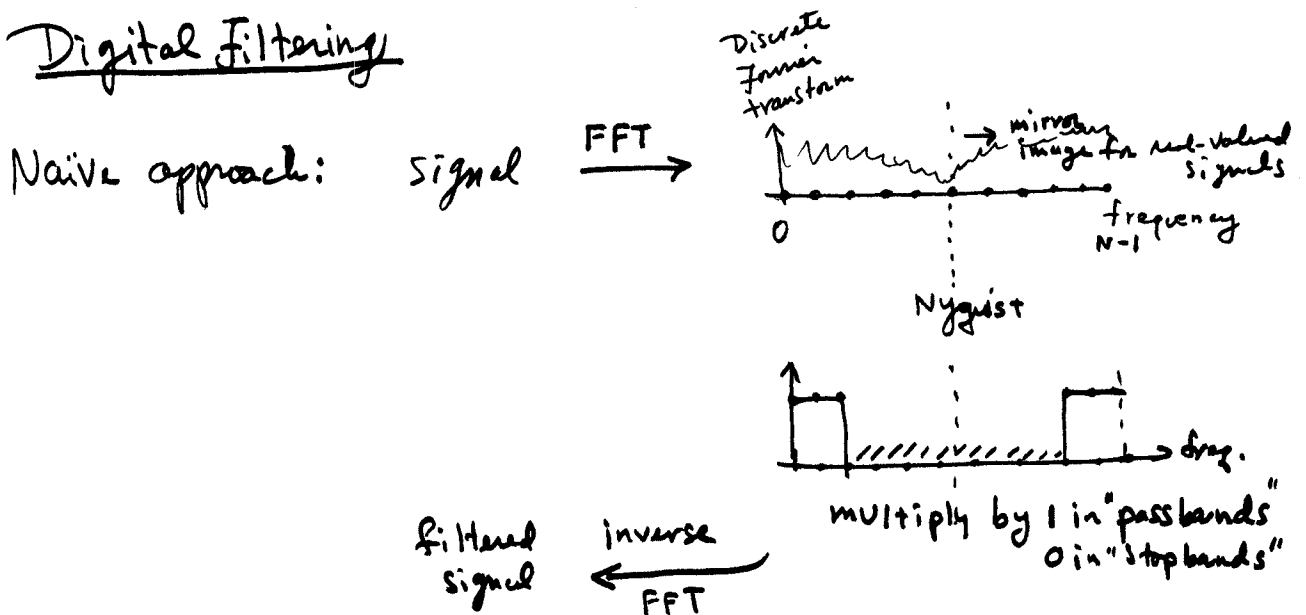 Digital Filtering
Naïve approach: signal
FFT
Discrete
Fourier
transform
mirror
image for real-valued
signals
0
frequency
N-1
Nyquist
freq.
multiply by 1 in "passbands"
0 in "stopbands"
inverse
FFT
filtered
signal